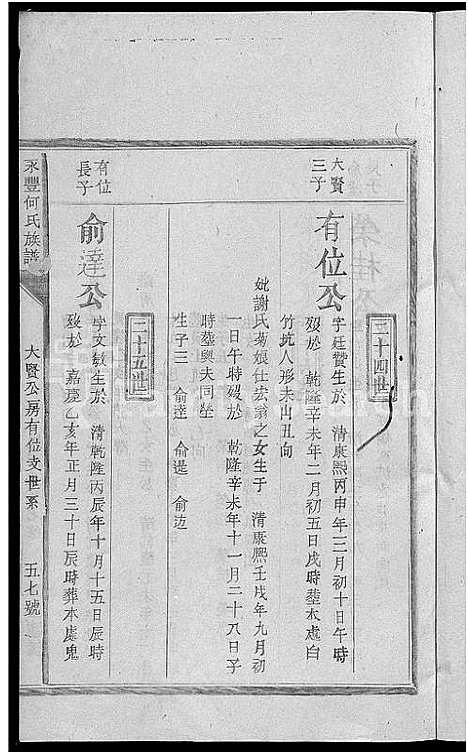 三十四世
大賢
三子
有位公
字廷贊生於 清康熙丙申年三月初十日午時
歿於 乾隆辛未年二月初五日戌時葬本處白
竹坑人形未山丑向
妣謝氏菊娘仕去翁之女生于 清康熙壬戌年九月初
一日午時歿於 乾隆辛未年十一月二十八日子
時葬與夫同塋
生子三 俞達 俞暹 俞边
三十五世
有位
長子
俞達公
字文敏生於 清乾隆丙辰年十月十五日辰時
歿於 嘉慶乙亥年正月三十日辰時葬本處鬼
永豐何氏族譜
大賢公房有位支世系
五七號